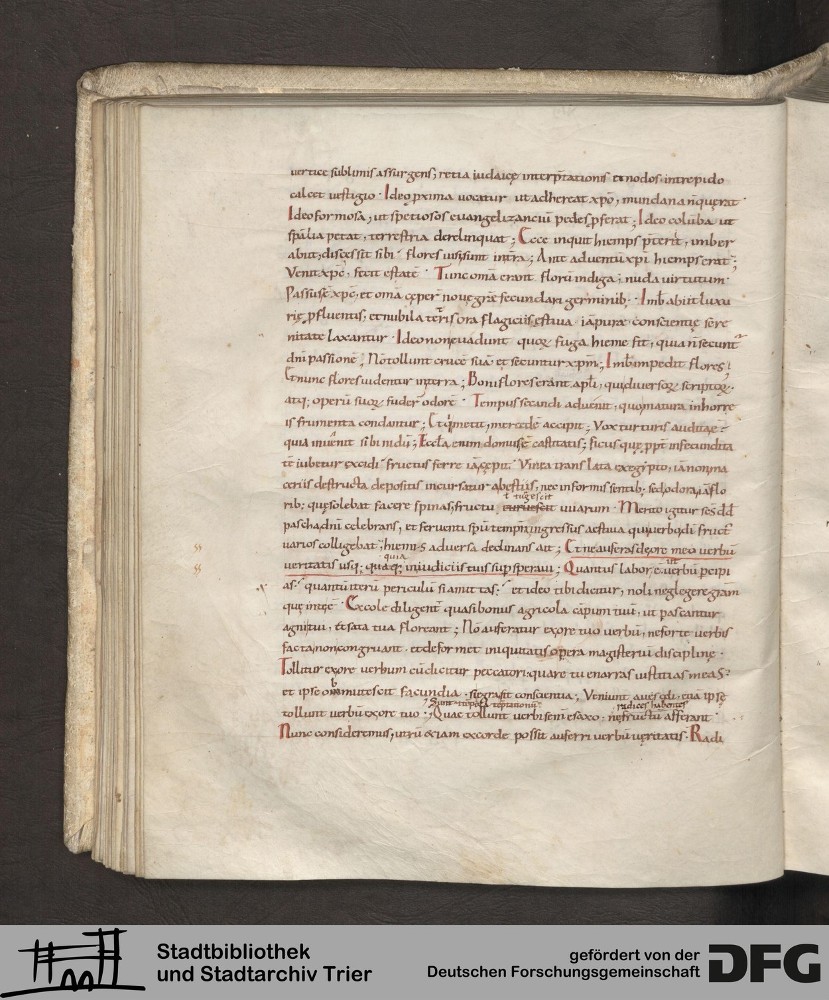 uertice sublimis assurgens; retia iudaicę interp̄tationis et nodos. intrepido
calcet uestigio. Ideo ꝓxima uocatur ut adhereat xp̄o, mundana n̄ quęrat.
Ideo formosa; ut spetiosos euangelizanciū pedes p̄ferat; Ideo colūba ut
sp̄alia petat, terrestria derelinquat; Ecce inquit hiemps p̄terit, imber
abiit, discessit sibi. flores uisi sunt in t̄ra; Ante aduentū xp̄i hiemps erat;
Venit xp̄c. fecit estatē. Tunc om̄a erant florū indiga; nuda uirtutum.
Passus ē xp̄c. et om̄a cęper nouę gr̄e secundari germinib;. Imb̄ abiit luxu
rię ꝓfluentis; et nubila tetris ora flagiciis
nitate laxantur. Ideo non euadunt quoꝝ fuga hieme fit, quia n̄ secunt̄
dn̄i passionē; Nō tollunt crucē suā et secuntur xp̄m; Imb̄ impedit flores;
Et nunc flores uidentur in terra; Boni flores erant apl̄i, qui diuersoꝝ scriptoꝝ.
atq; operū suoꝝ fuder̄ odorē. Tempus secandi aduenit, quo matura in horre
is frumenta condantur; Et q̄ metit, mercedē accipit; Vox turturis audita ē;
quia inuenit sibi nidū; Eccl̄a enim domus ē castitatis; ficus quę ꝓpt̄ infecundita
tē iubetur excidi fructus ferre iā cępit. Vinea translata ex egypto, iā non ma
ceriis destructa depositis incursatur a bestiis; nec informis sentib; sed odora iā flo
t turgescit
rib; quę solebat facere spinas, fructu uuarum. Merito igitur sc̄s dd̄
pascha dn̄i celebrans, et feruenti sp̄u tempū ingressus aestiua qui uerbi di fruct̄
uarios colligebat, hiemis aduersa declinans ait; Et ne auferas de ore meo uerbū
quia
ueritatis usq; quaq; in iudiciis tuis sup̄speraui; Quantus labor ē uerbū percipi
as. quantū iterū periculū si amittas; et ideo tibi dicitur, noli neglegere gr̄am
quę in te ē. Excole diligent̄ quasi bonus agricola cāpum tuū, ut pascantur
agni tui, et sata tua floreant; Nō auferatur ex ore tuo uerbū, ne forte uerbis
facta non congruant. et deformet iniquitatis opera magisteriū disciplinę.
Tollitur ex ore uerbum cū dicitur peccatori. quare tu enarras iustitias meas?
et ipse obmutescit facundia. si egra sit conscientia; Veniunt aues di. et ia ipsę
radices habentes
tollunt uerbū ex ore tuo; Quae tollunt uerbi sem̄ e saxo. ne fructū afferant.
Nunc consideremus, utrū etiam ex corde possit auferri uerbū ueritatis. Radi
Stadtbibliothek
und Stadtarchiv Trier
gefördert von der
Deutschen Forschungsgemeinschaft
DFG